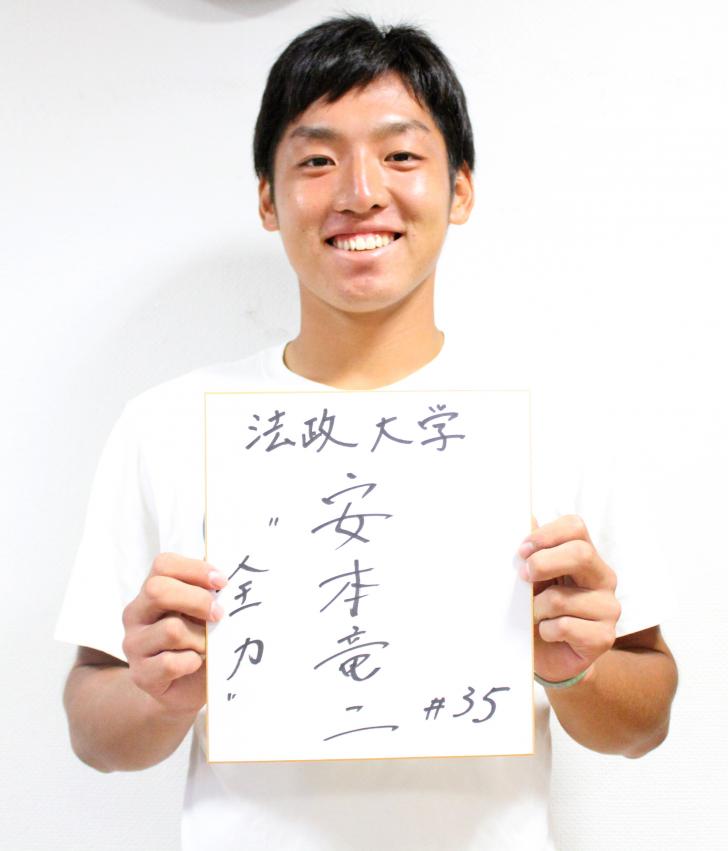 法政大学
安本竜二
#35
"全力"